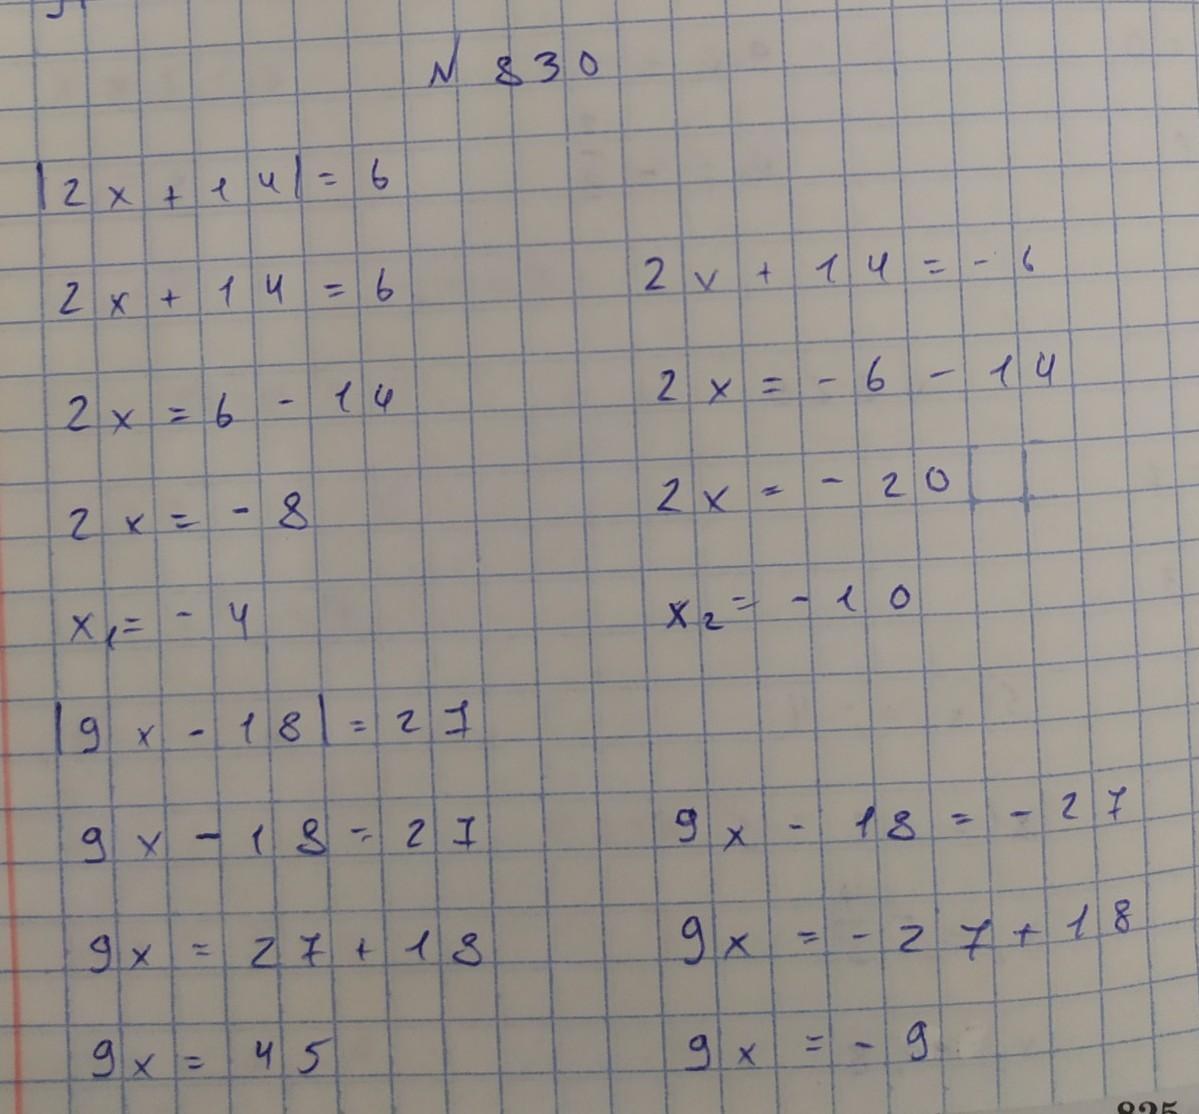 N 830
|2x+14|=6
2x+14=6
2x+14=-6
2x=6-14
2x=-6-14
2x=-8
2x=-20
x₁=-4
x₂=-10
|9x-18|=27
9x-18=27
9x-18=-27
9x=27+18
9x=-27+18
9x=45
9x=-9